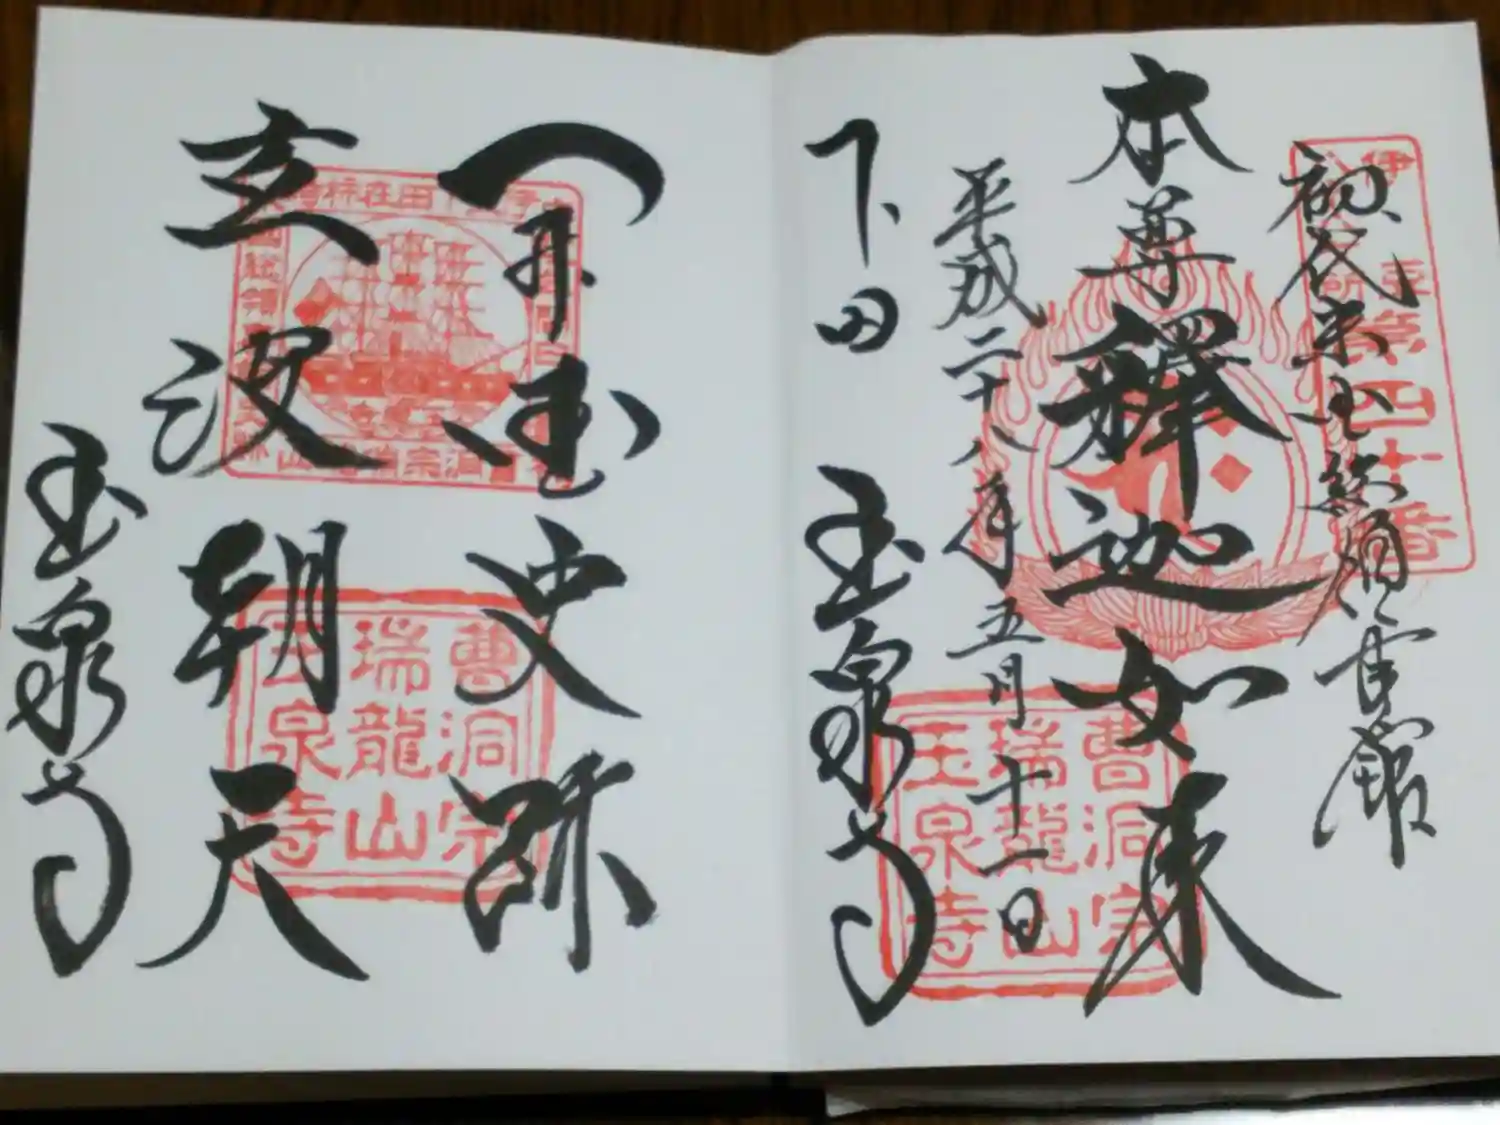 伊豆
第四十番
初代米国総領事館
本尊釋迦如来
平成二十八年五月十一日
下田 玉泉寺
曹洞宗
瑞龍山
玉泉寺
開国史跡
玄浚朝天
玉泉寺
曹洞宗
瑞龍山
玉泉寺